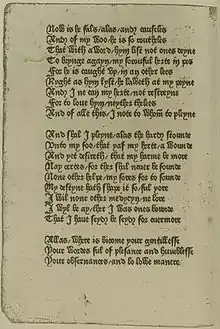 Now is he fals / alas / and causeles
And of my woo / he is so routheles
That with a word / hym list not ones deyne
To bringe agayn / my sorouful herte in pees
For he is caught vp / in an other lees
Right as hym lyst / he laweth at my pyne
And I ne can my herte / not restreyne
For to loue hym / neythertheles
And of alle this / I note to whom to pleyne
And shal I pleyne / alas the hardy stounde
Vnto my foo / that yaf my herte a wounde
And yet desireth / that my harme be more
Nay certes / for ther shal neuer be founde
None other helpe / my sores for to sounde
My desteyne hath shape it so / ful yore
I wil none other medecyn / ne lore
I wyl be ay / ther I was ones bounde
That I haue seyd / be seyd for euermore
Allas / where is become your gentillesse
Your wordes ful of plesance and humblesse
Your obseruances / and so lowe manere